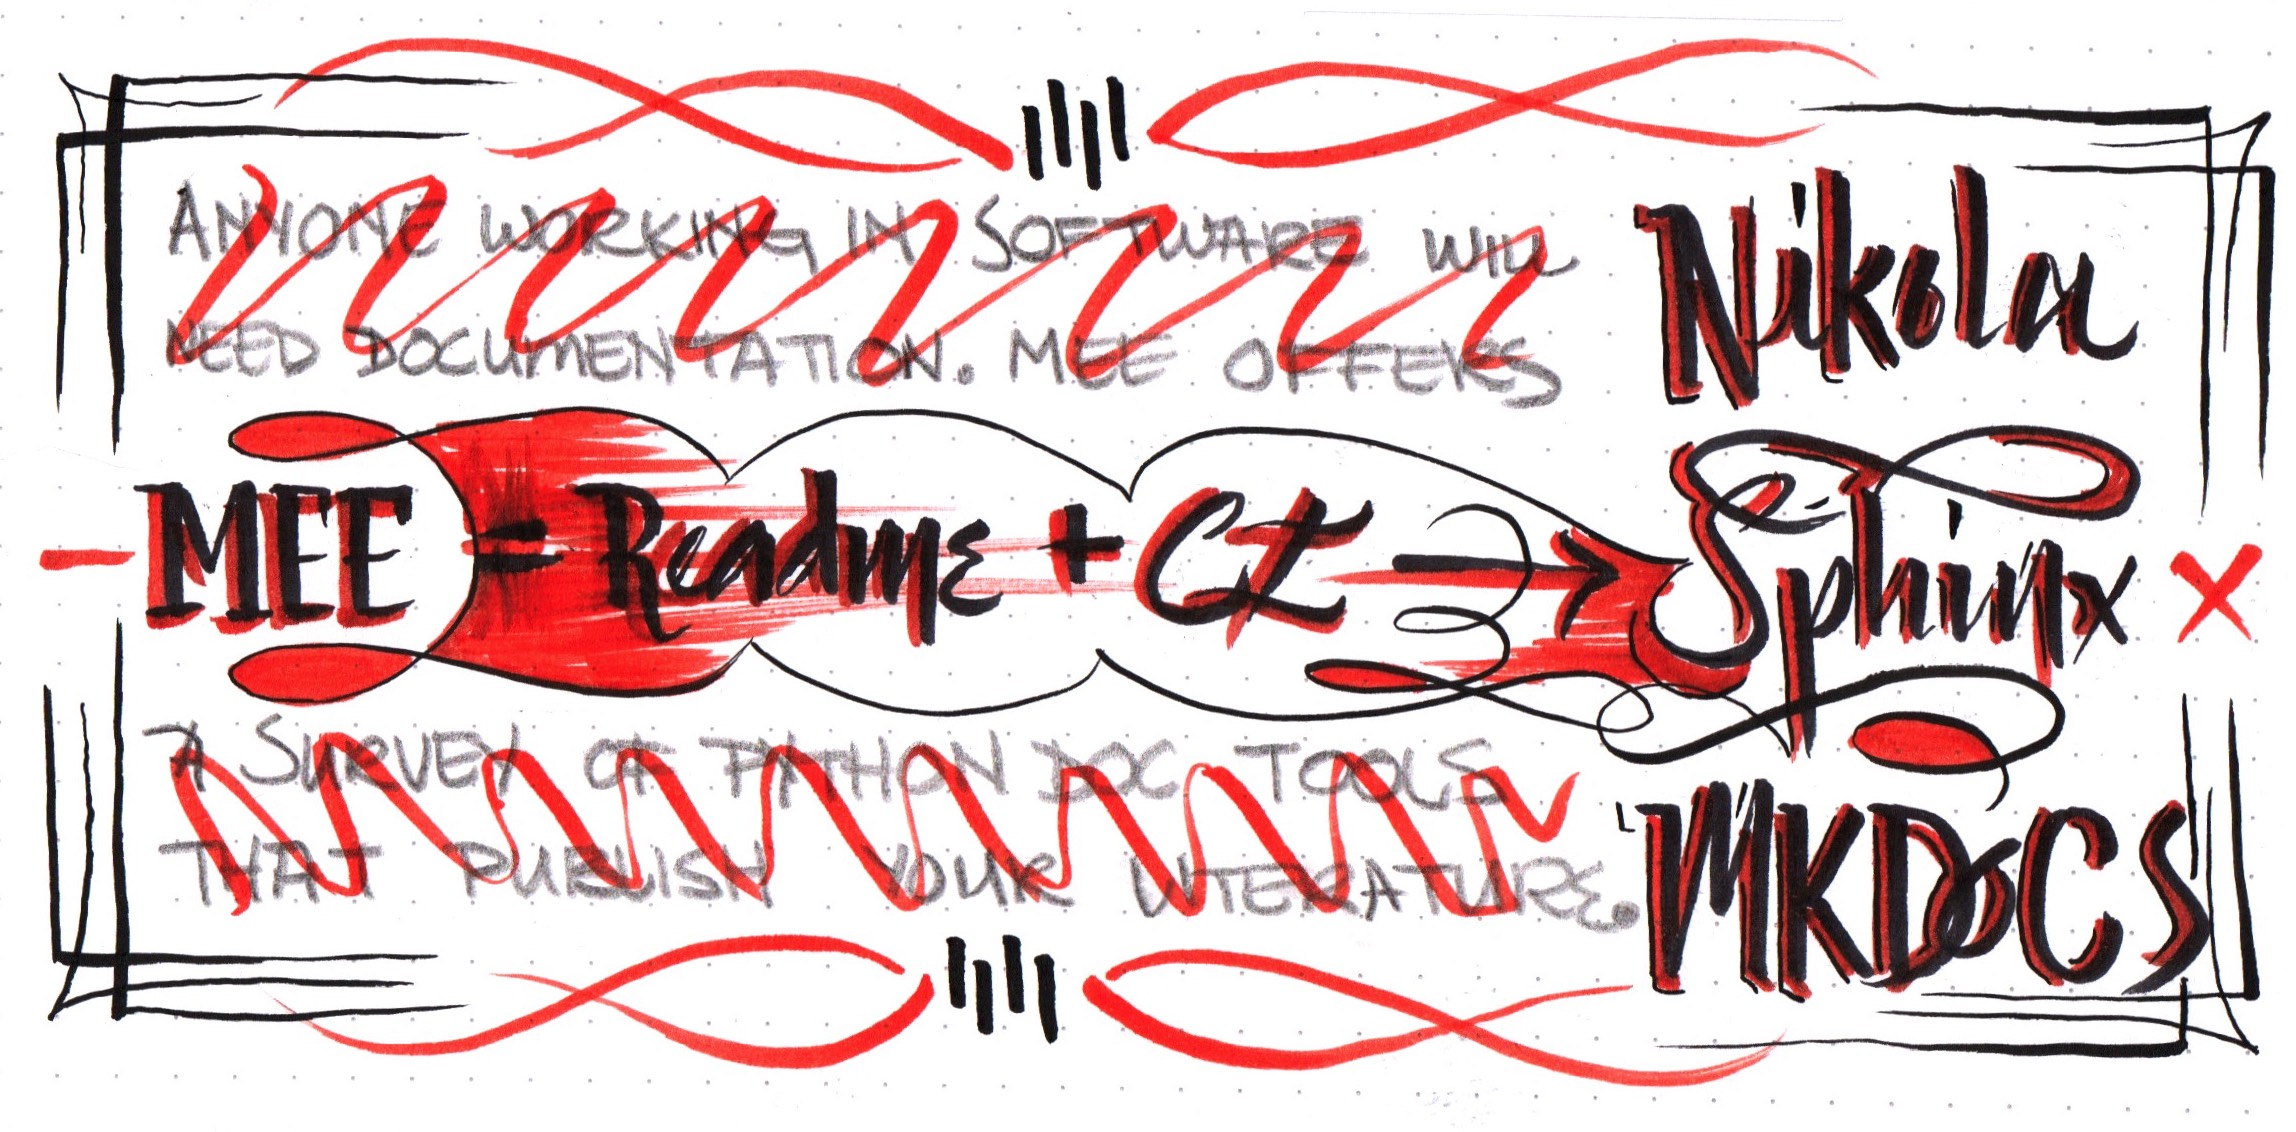 ANYONE WORKING IN SOFTWARE WILL
NEED DOCUMENTATION. MEE OFFERS
MEE = Readme + CI →
A SURVEY OF PYTHON DOC TOOLS
THAT PUBLISH YOUR LITERATURE.
Nikola
Sphinx
MKDOCS